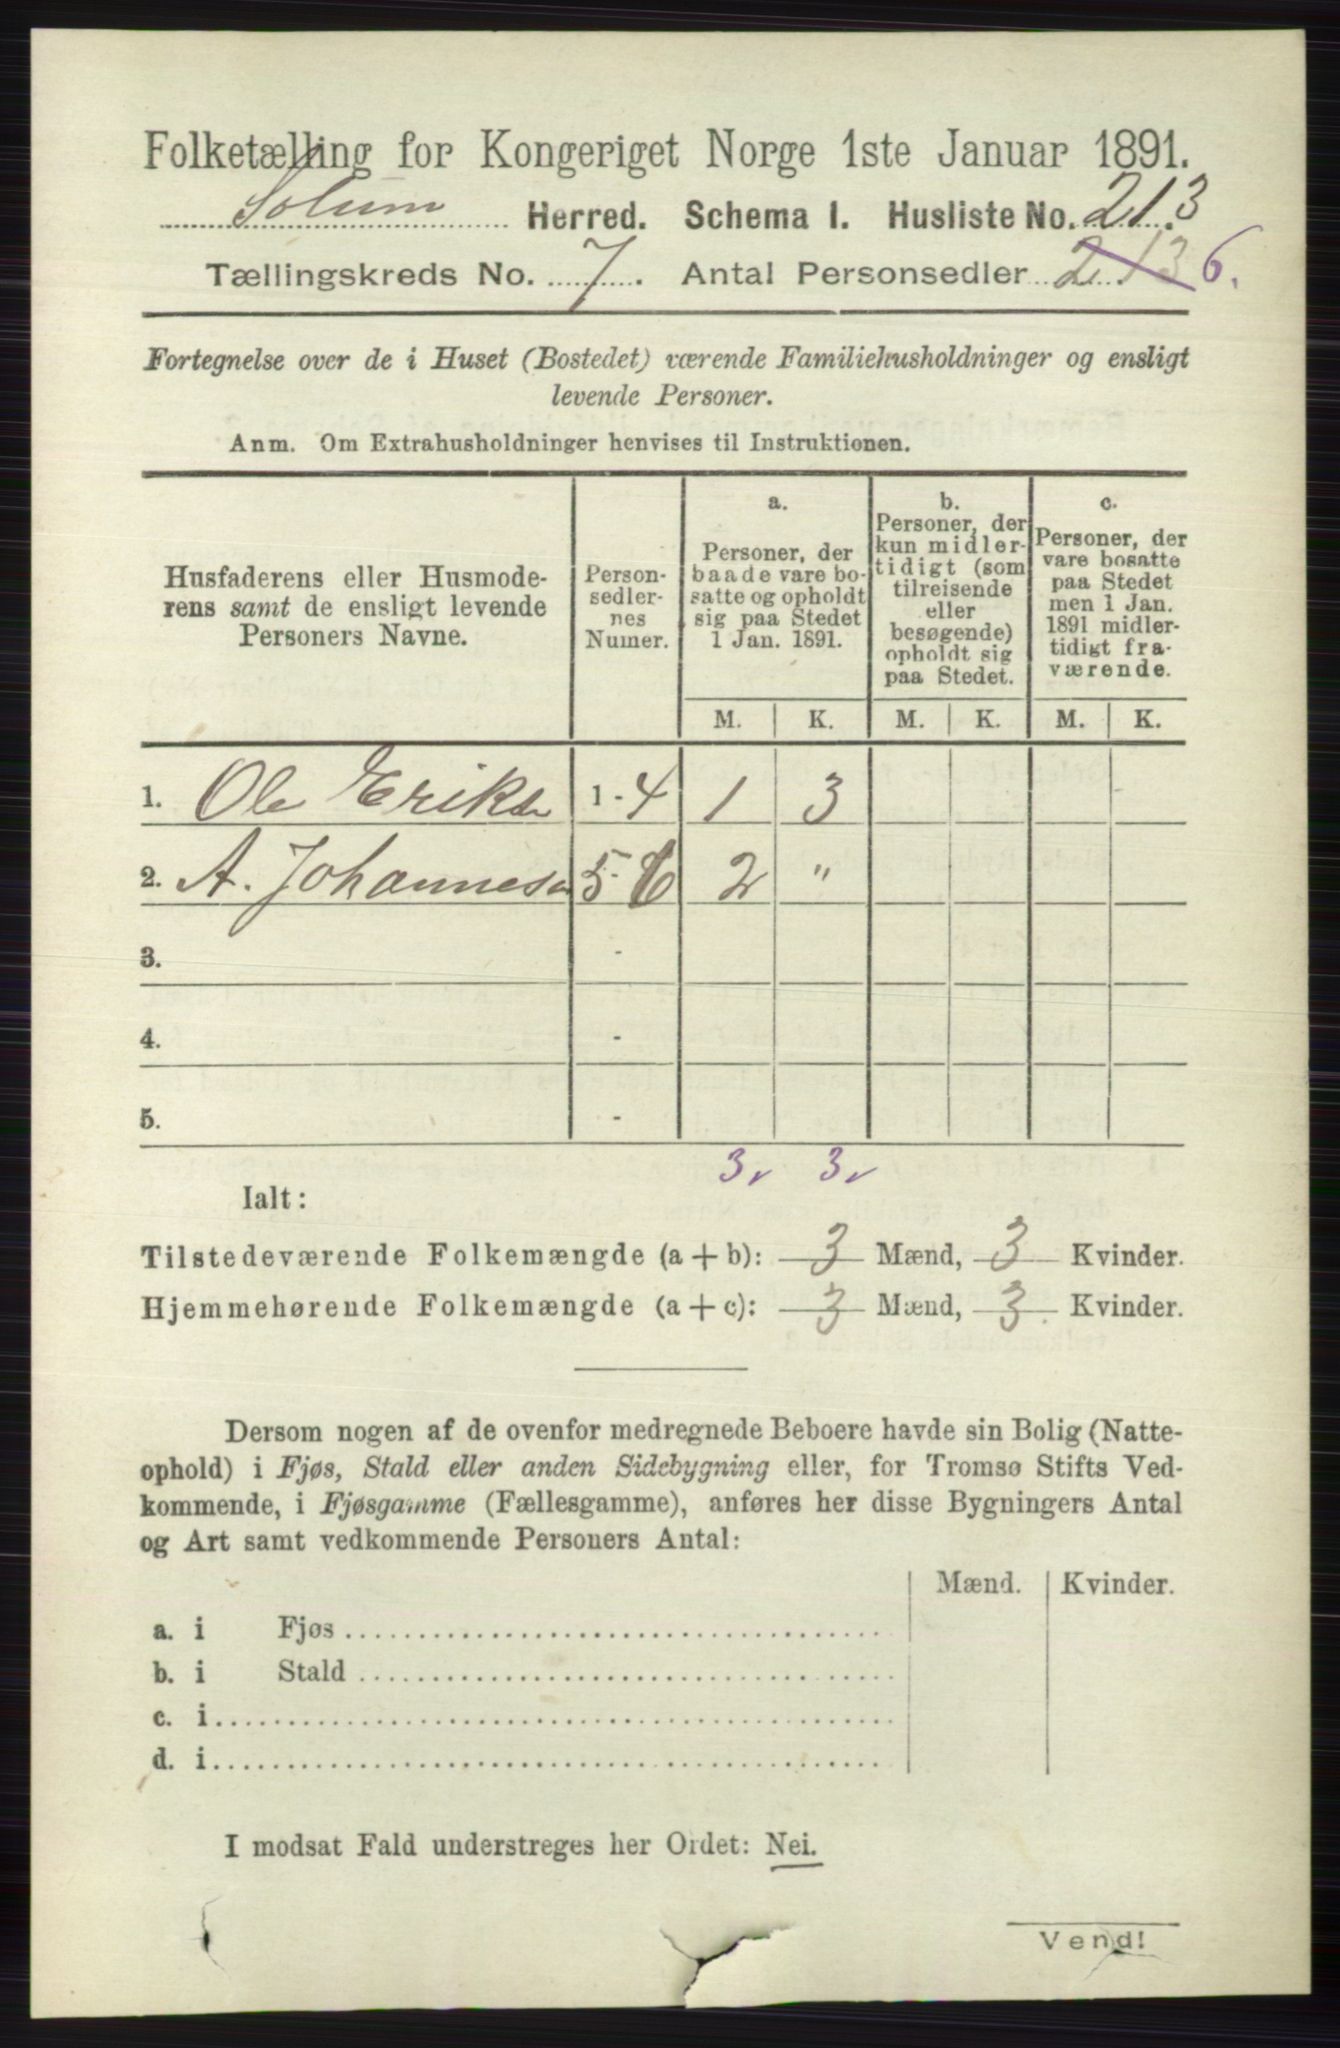 Folketælling for Kongeriget Norge 1ste Januar 1891.
Solum Herred. Schema I. Husliste No. 213
Tællingskreds No. 7. Antal Personsedler 213 6.
Fortegnelse over de i Huset (Bostedet) værende Familiehusholdninger og ensligt
levende Personer.
Anm. Om Extrahusholdninger henvises til Instruktionen.
Husfaderens eller Husmode-
rens samt de ensligt levende
Personers Navne.
Person-
sedler-
nes
Numer.
a.
Personer, der
baade vare bo-
satte og opholdt
sig paa Stedet
1 Jan. 1891.
b.
Personer, der
kun midler-
tidigt (som
tilreisende
eller
besøgende)
opholdt sig
paa Stedet.
c.
Personer, der
vare bosatte
paa Stedet
men i Jan.
1891 midler-
tidigt fra-
værende.
M. K. M. K. M. K.
1. Ole Eriksn 1 - 4 1 3
2. A. Johannesen 5 - 6 2 "
3. -
4. -
5. -
3 3
Ialt:
Tilstedeværende Folkemængde (a + b): 3 Mænd, 3 Kvinder.
Hjemmehørende Folkemængde (a + c): 3 Mænd, 3 Kvinder.
Dersom nogen af de ovenfor medregnede Beboere havde sin Bolig (Natte-
ophold) i Fjøs, Stald eller anden Sidebygning eller, for Tromsø Stifts Ved-
kommende, i Fjøsgamme (Fællesgamme), anføres her disse Bygningers Antal
og Art samt vedkommende Personers Antal:
Mænd. Kvinder.
a. i Fjøs
b. i Stald
c. i
d. i
I modsat Fald understreges her Ordet: Nei.
Vend!